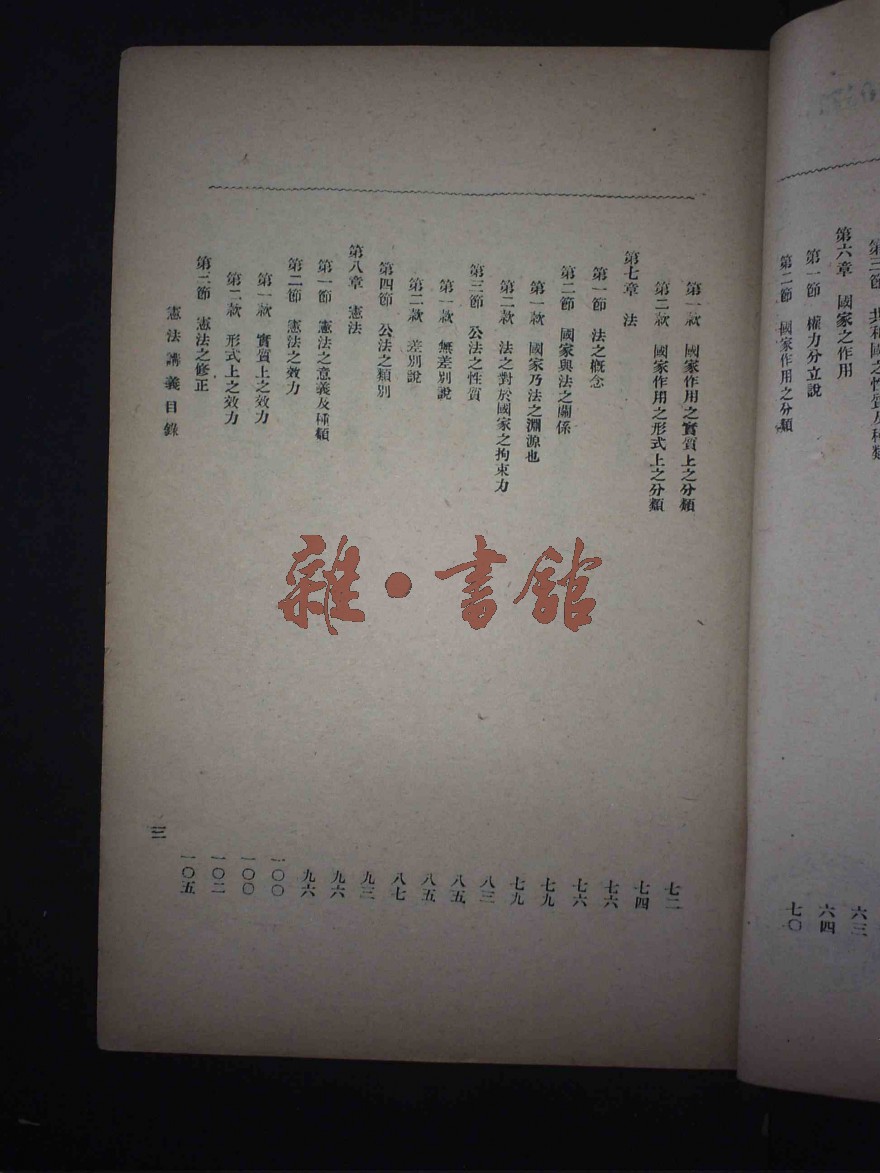 第三節 共和國之性質及種類
第六章 國家之作用 六三
第一節 權力分立說 六四
第二節 國家作用之分類 七〇
第一款 國家作用之實質上之分類 七二
第二款 國家作用之形式上之分類 七四
第七章 法 七六
第一節 法之概念 七六
第二節 國家與法之關係 七九
第一款 國家乃法之淵源也 七九
第二款 法之對於國家之拘束力 八三
第三節 公法之性質 八五
第一款 無差別說 八五
第二款 差別說 八七
第四節 公法之類別 九三
第八章 憲法 九六
第一節 憲法之意義及種類 九六
第二節 憲法之效力 一〇〇
第一款 實質上之效力 一〇〇
第二款 形式上之效力 一〇二
第三節 憲法之修正 一〇五
憲法講義目錄 三
雜·書館